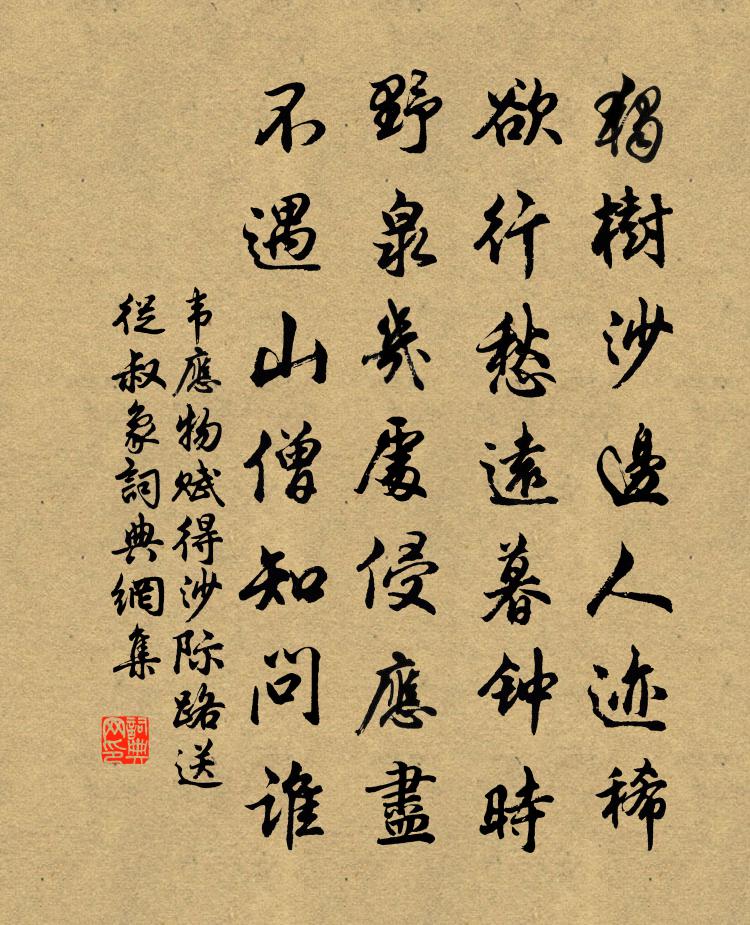 獨樹沙邊人迹稀
欲行愁遠暮钟時
野泉幾處侵應盡
不遇山僧知問誰
韦應物赋得沙际路送
從叔象詞典網集
詞典网印